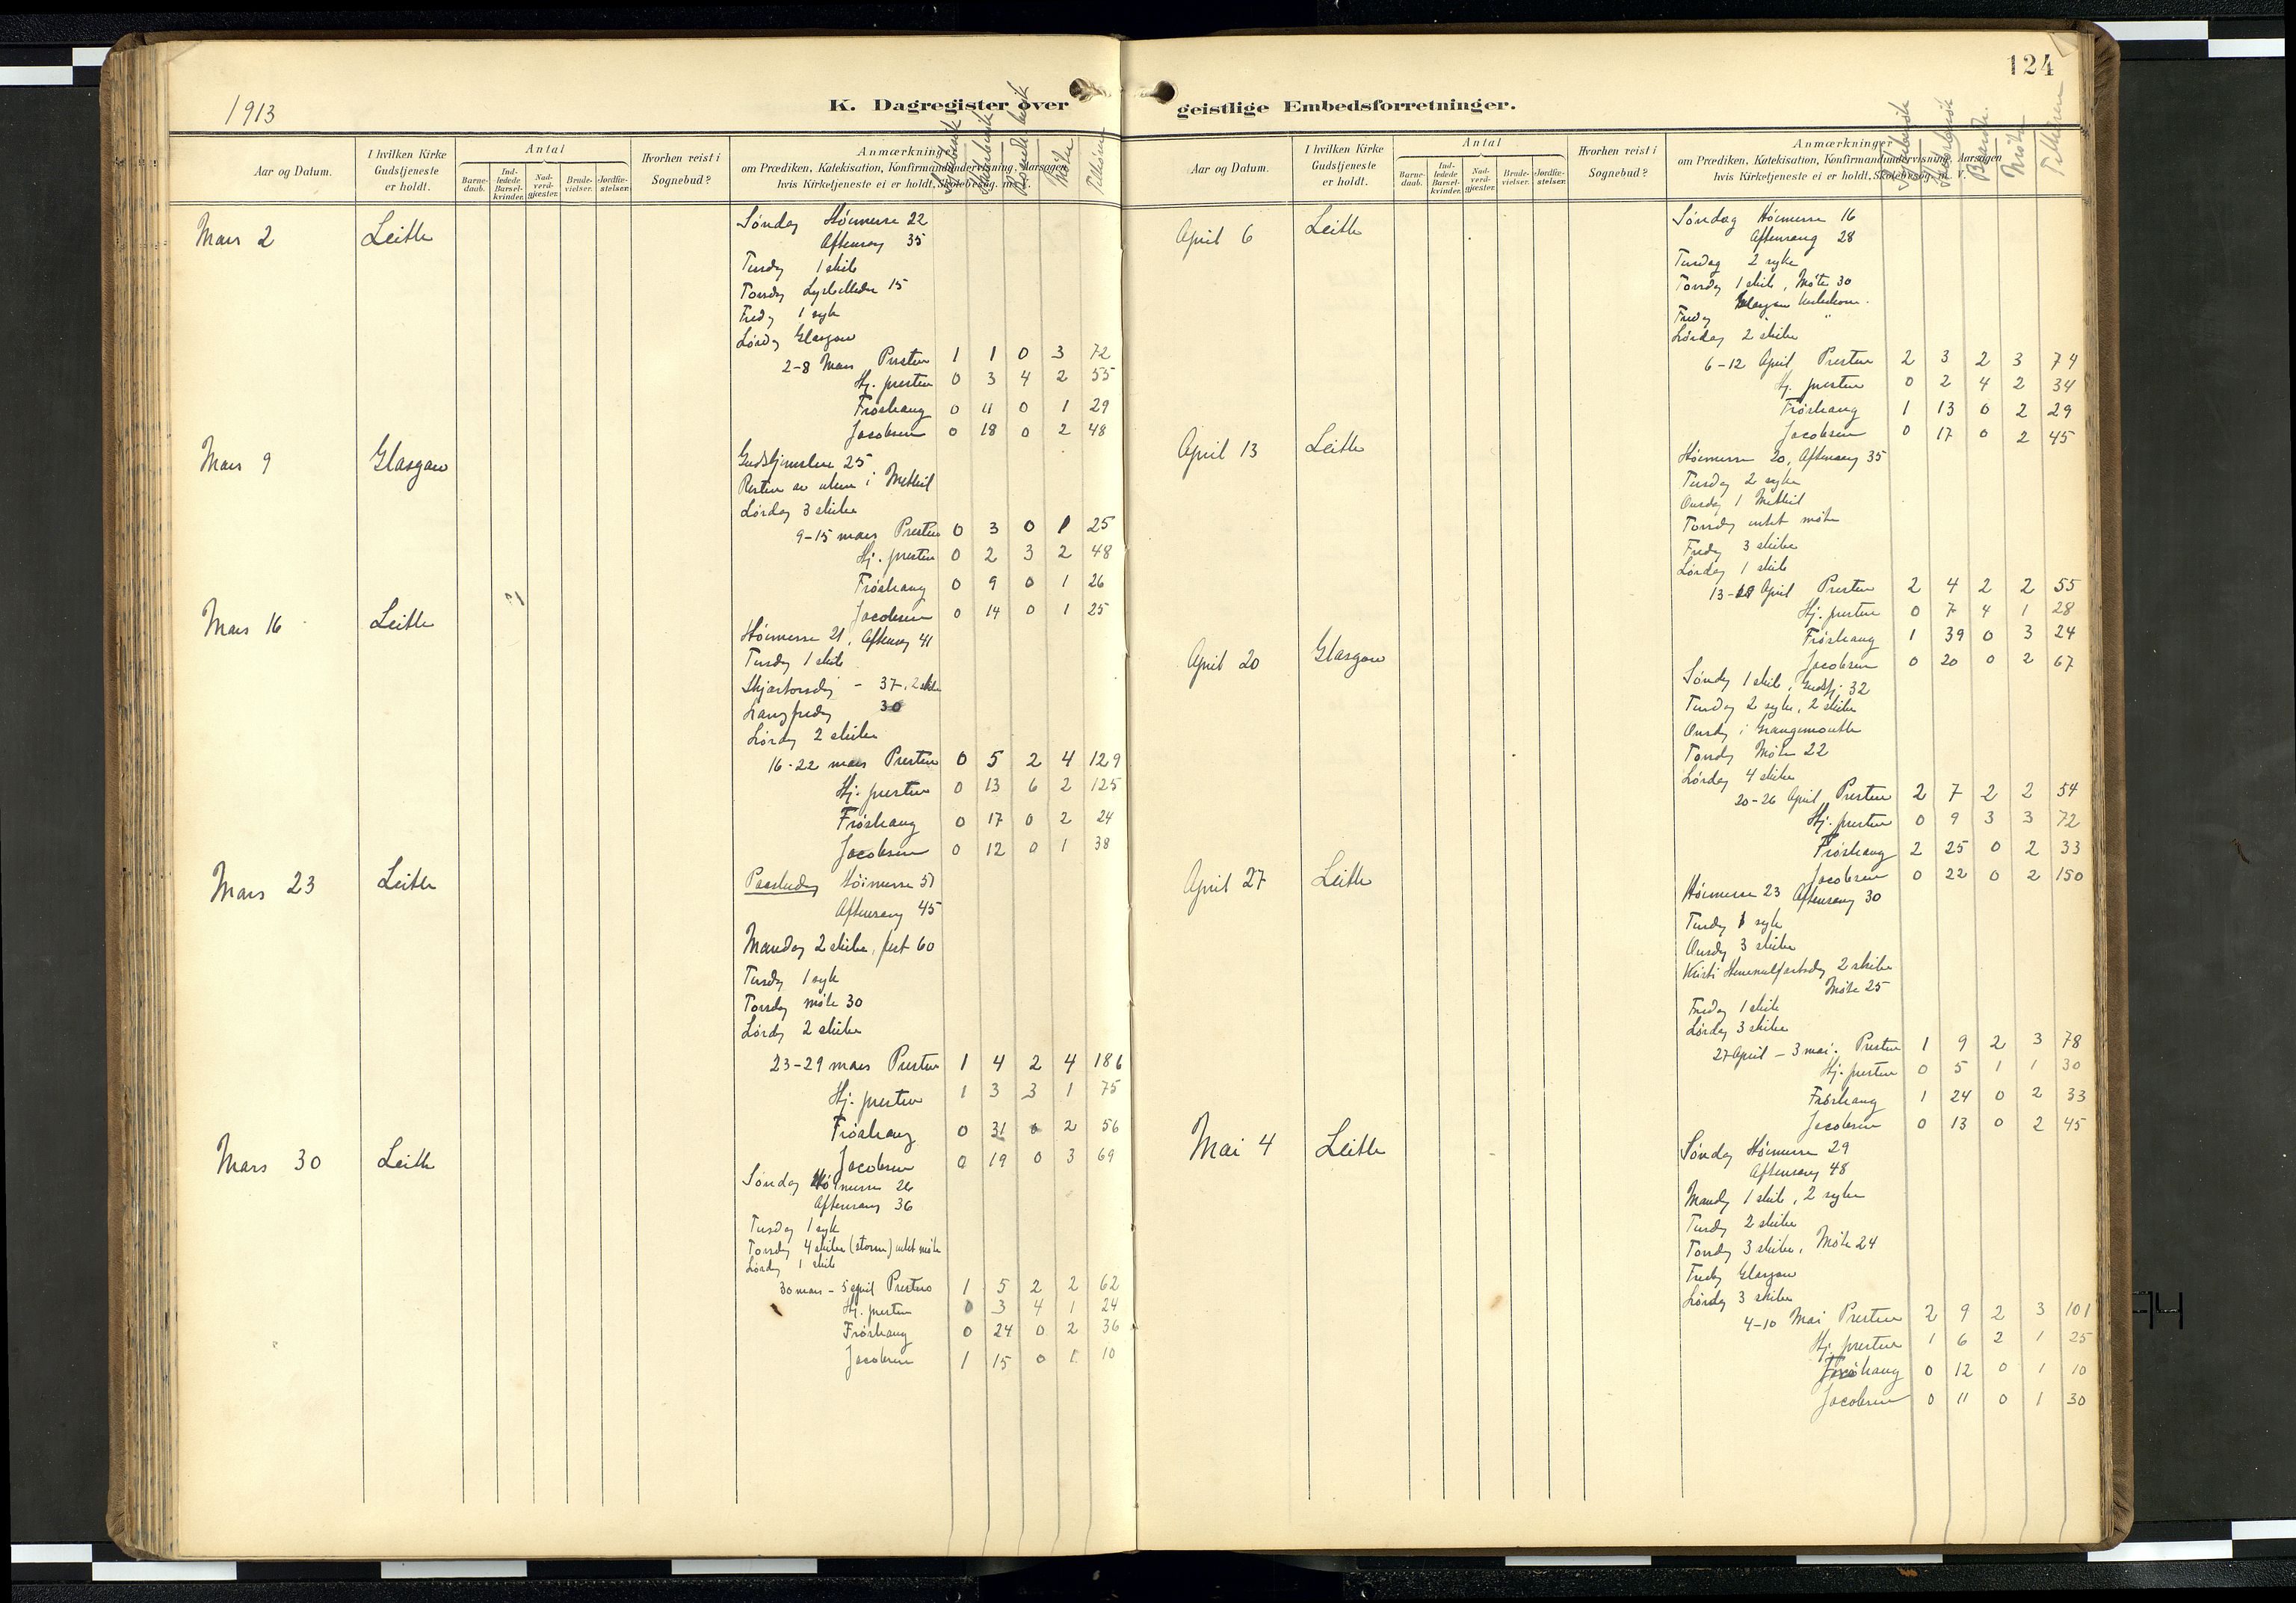 1913
K. Dagregister over
Aar og Datum.
I hvilken Kirke
Gudstjeneste
er holdt.
Antal
Barne-
daab.
Ind-
ledede
Barsel-
kvinder.
Nad-
verd-
gjæster.
Brude-
vielser.
Jordfæ-
stelser.
Hvorhen reist i
Sognebud?
Anmærkninger
om Prædiken, Katekisation, Konfirmandundervisning, Aarsagen
hvis Kirketjeneste ei er holdt, Skolebesøg m. v.
Møter
Tilhørere
Mars 2 Leith Søndag Høimesse 22
Aftensang 35
Tirsdag 1 skib
Torsdag Lysbilleder 15
Fredag 1 syk
Lørdag Glasgow
2-8 Mars Presten 1 1 0 3 72
Hj. presten 0 3 4 2 55
Frøshaug 0 11 0 1 29
Jacobsen 0 18 0 2 48
Mars 9 Glasgow Gudstjeneste 25
Resten av uken i Methil
Lørdag 3 skibe
9-15 mars Presten 0 3 0 1 25
Hj. presten 0 2 3 2 48
Frøshaug 0 9 0 1 26
Jacobsen 0 14 0 1 25
Mars 16 Leith Høimesse 21, Aftensang 41
Tirsdag 1 skib
Skjærtorsdag - 37, 2 skibe
Langfredag 30
Lørdag 2 skibe
16-22 mars Presten 0 5 2 4 129
Hj. presten 0 13 6 2 125
Frøshaug 0 17 0 2 24
Jacobsen 0 12 0 1 38
Mars 23 Leith Paaskedag Høimesse 51
Aftensang 45
Mandag 2 skibe, fest 60
Tirsdag 1 syk
Torsdag møte 30
Lørdag 2 skibe
23-29 mars Presten 1 4 2 4 186
Hj. presten 1 3 3 1 75
Frøshaug 0 31 0 2 56
Jacobsen 0 19 0 3 69
Mars 30 Leith Søndag Høimesse 26
Aftensang 36
Tirsdag 1 syk
Torsdag 4 skibe (storm) intet møte
Lørdag 1 skib
30 mars - 5 april Presten 1 5 2 2 62
Hj. presten 0 3 4 1 24
Frøshaug 0 24 0 2 36
Jacobsen 1 15 0 1 10
124
geistlige Embedsforretninger.
Aar og Datum.
I hvilken Kirke
Gudstjeneste
er holdt.
Antal
Barne-
daab.
Ind-
ledede
Barsel-
kvinder.
Nad-
verd-
gjæster.
Brude-
vielser.
Jordfæ-
stelser.
Hvorhen reist i
Sognebud?
Anmærkninger
om Prædiken, Katekisation, Konfirmandundervisning, Aarsagen
hvis Kirketjeneste ei er holdt, Skolebesøg m. v.
Møter
Tilhørere
April 6 Leith Søndag Høimesse 16
Aftensang 28
Tirsdag 2 syke
Torsdag 1 skib, Møte 30
Fredag Glasgow
Lørdag 2 skibe
6-12 April Presten 2 3 2 3 74
Hj. presten 0 2 4 2 34
Frøshaug 1 13 0 2 29
Jacobsen 0 17 0 2 45
April 13 Leith Høimesse 20, Aftensang 35
Tirsdag 2 syke
Onsdag i Methil
Torsdag intet møte
Fredag 3 skibe
Lørdag 1 skib
13-19 April Presten 2 4 2 2 55
Hj. presten 0 7 4 1 28
Frøshaug 1 39 0 3 24
Jacobsen 0 20 0 2 67
April 20 Glasgow Søndag 1 skib, Gudstj. 32
Tirsdag 2 syke, 2 skibe
Onsdag i Grangemouth
Torsdag Møte 22
Lørdag 4 skibe
20-26 April Presten 2 7 2 2 54
Hj. presten 0 9 3 3 72
Frøshaug 2 25 0 2 33
Jacobsen 0 22 0 2 150
April 27 Leith Høimesse 23 Aftensang 30
Tirsdag 1 syk
Onsdag 3 skibe
Kristi Himmelfartsdag 2 skibe
Møte 25
Fredag 1 skib
Lørdag 3 skibe
27 April - 3 mai. Presten 1 9 2 3 78
Hj. presten 0 5 1 1 30
Frøshaug 1 24 0 2 33
Jacobsen 0 13 0 2 45
Mai 4 Leith Søndag Høimesse 29
Aftensang 48
Mandag 1 skib, 2 syke
Tirsdag 2 skibe
Torsdag 3 skibe, Møte 24
Fredag Glasgow
Lørdag 3 skibe
4-10 Mai Presten 2 9 2 3 101
Hj. presten 1 6 2 1 25
Frøshaug 0 12 0 1 10
Jacobsen 0 11 0 1 30